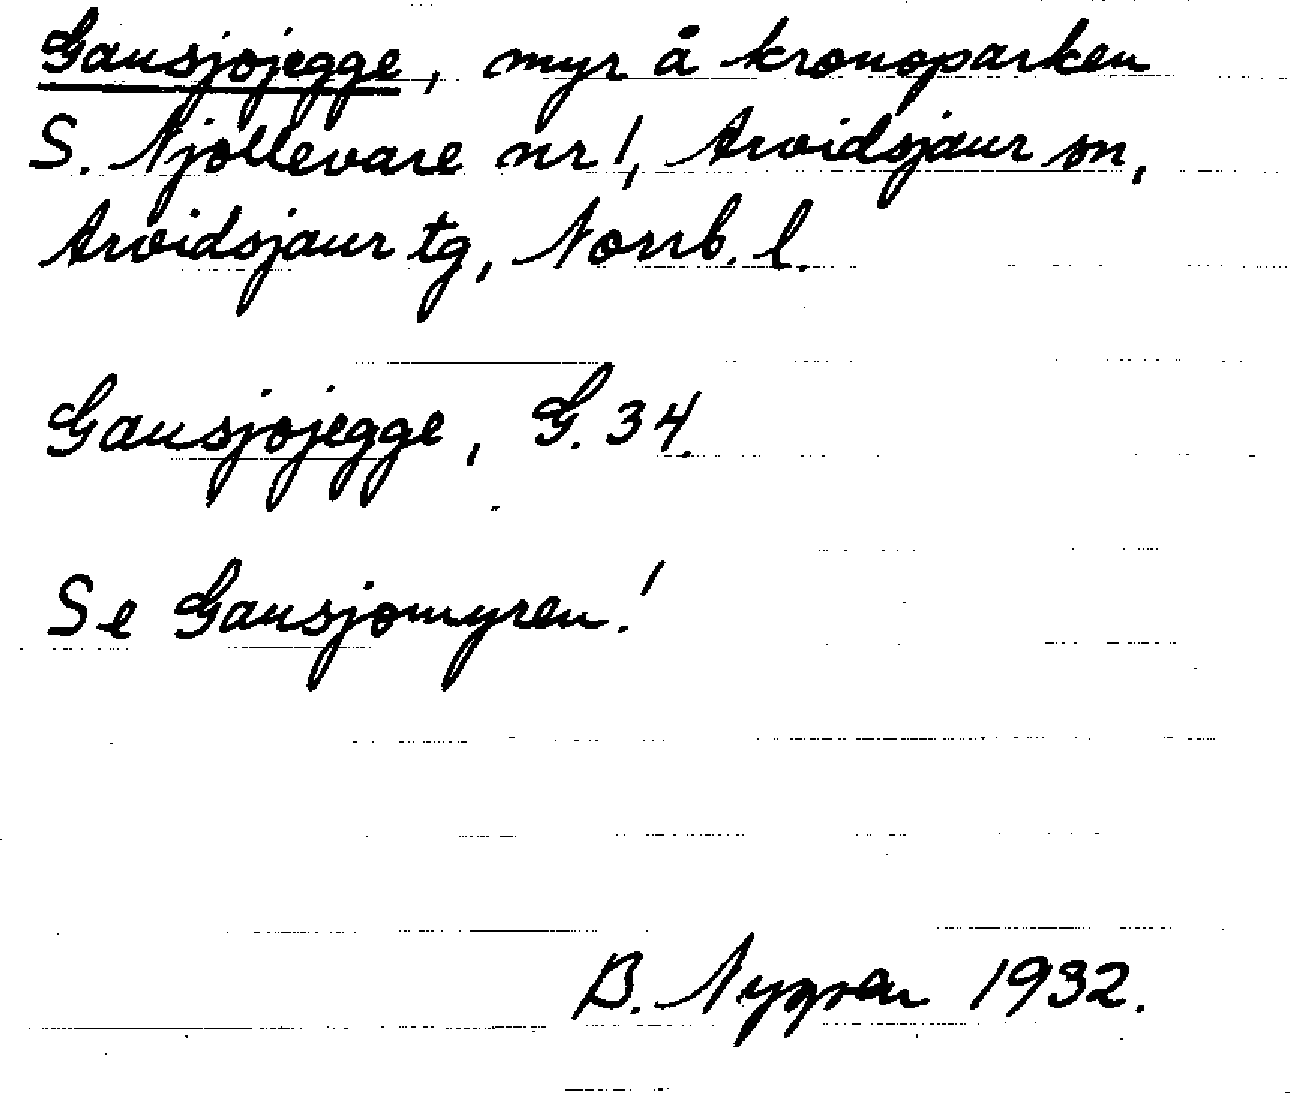 Gausjojegge, myr å kronoparken
S. Njollevare nr 1, Arvidsjaur sn,
Arvidsjaur tg, Norrb. l.
Gausjojegge, G. 34.
Se Gausjomyren!
B. Nygren 1932.